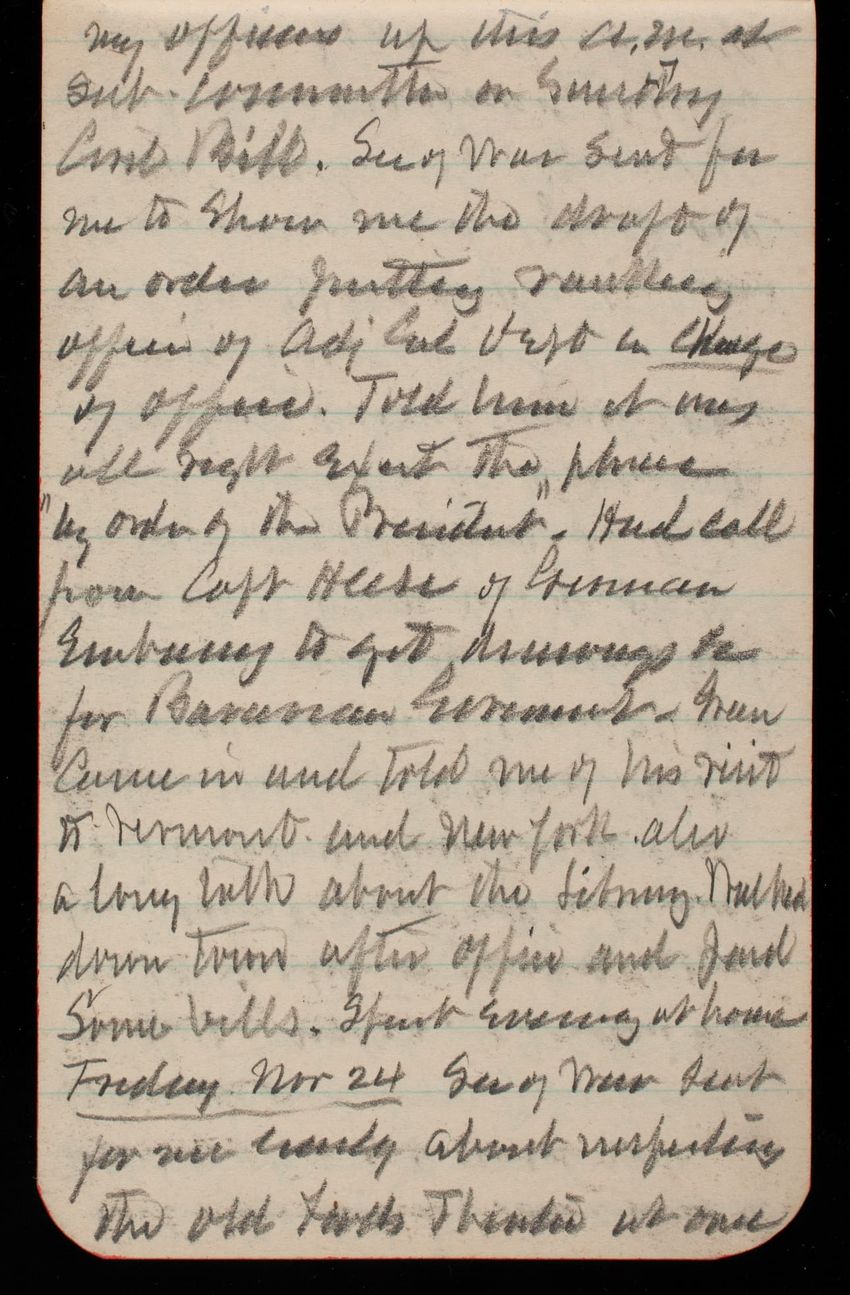 my officers up this a.m. at
Sub-Committee on Sundry
Civil Bill. Sec of War Sent for
me to Show me the draft of
an order putting ranking
officer of Adj Gnl Dept in Charge
of office. Told him it was
all right Except the phrase
"by order of the President". Had call
from Capt of German
Embassy to get drawings &c
for Bavarian Government -
Came in and told me of his visit
to Vermont and New York also
a long talk about the Library. Walked
down town after office and paid
Some bills. Spent Evening at home
Friday Nov 24 Sec of War Sent
for me early about inspecting
the old Fords Theatre at once